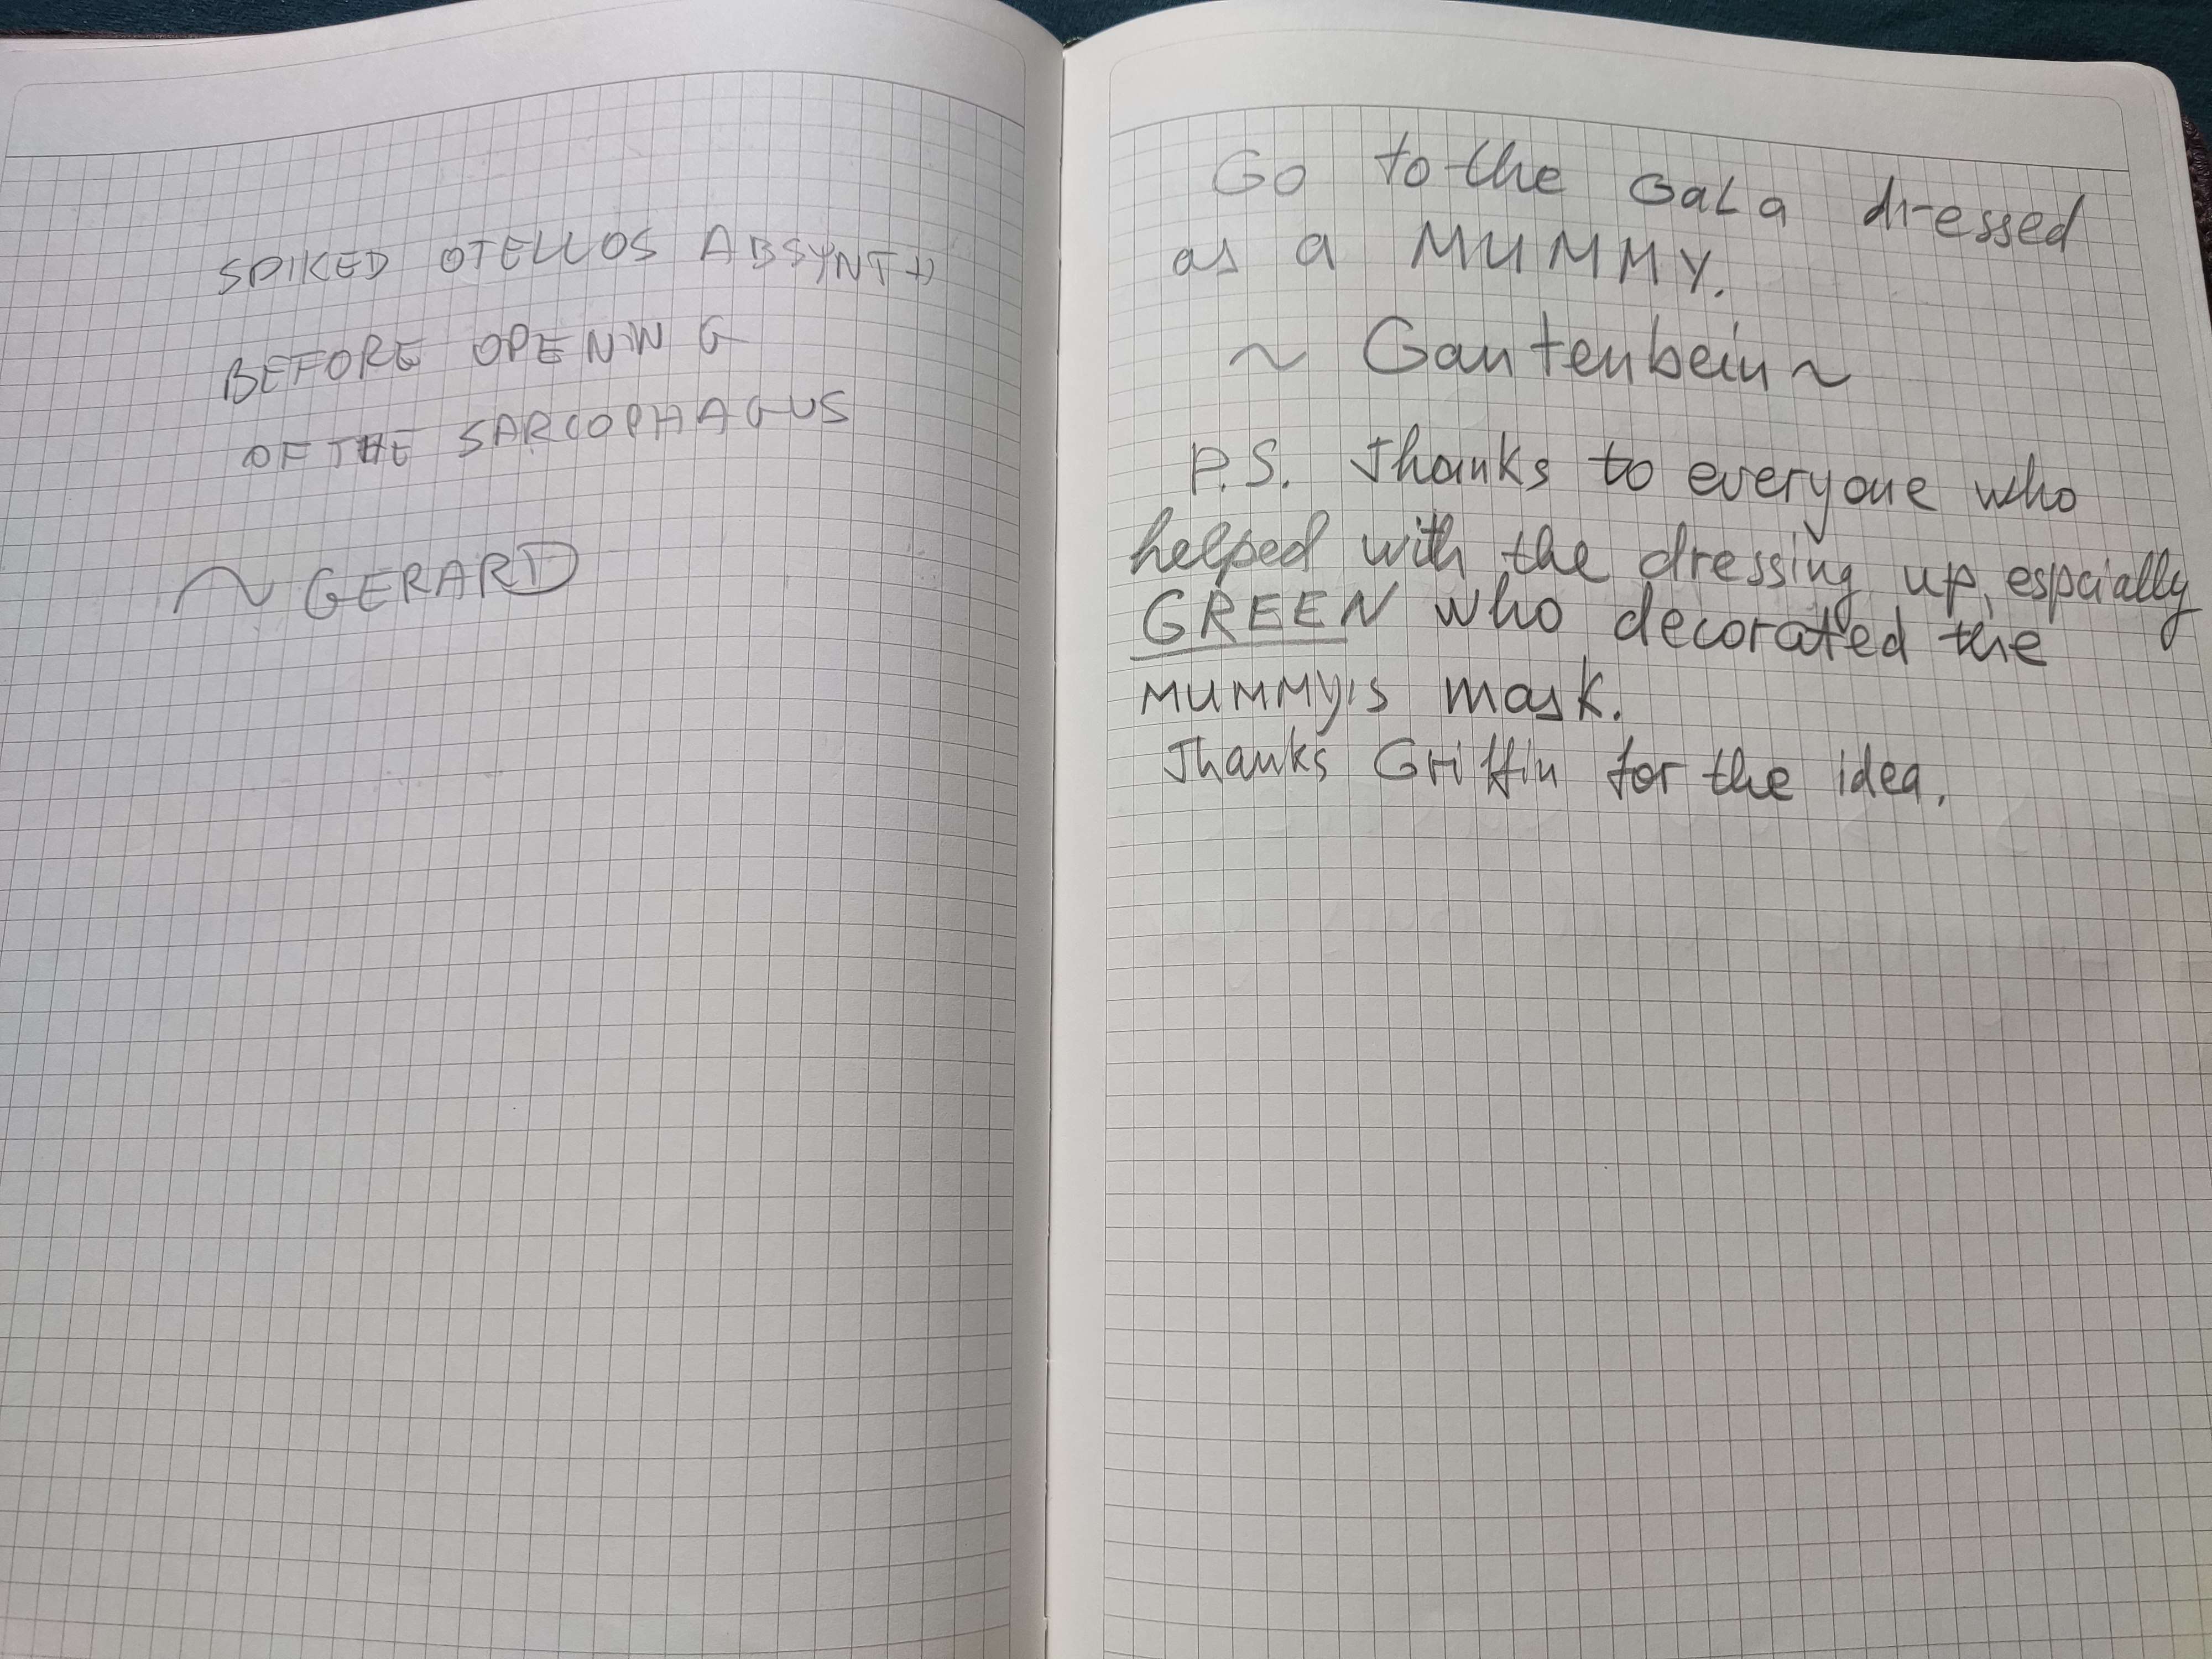 SPIKED OTELLOS ABSYNTH
BEFORE OPENING
OF THE SARCOPHAGUS
~ GERARD
Go to the GaLa dressed
as a MUMMY.
~ Gantenbein ~
P.S. Thanks to everyone who
helped with the dressing up, espcially
GREEN who decorated the
MUMMY's mask.
Thanks Griffin for the idea.